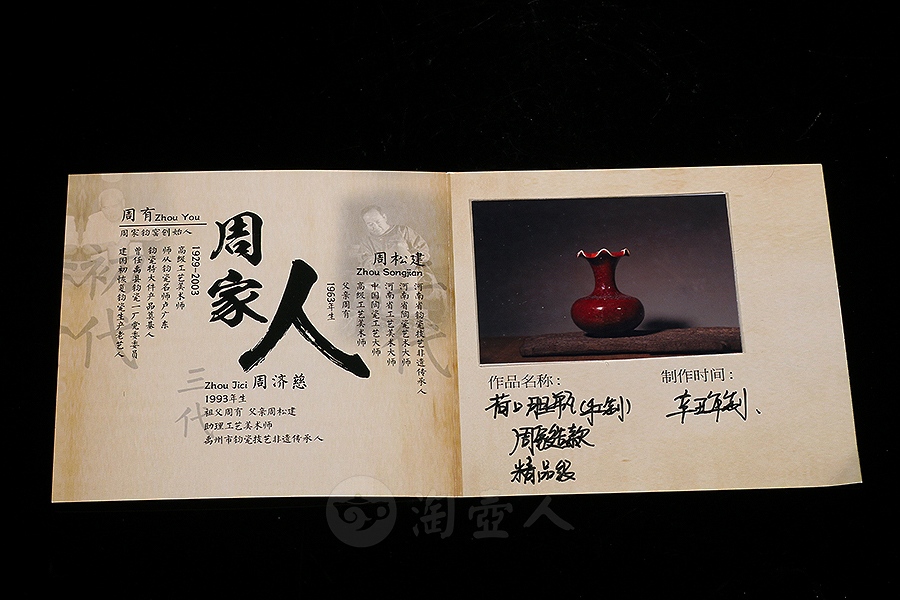 周有 Zhou You
周家钧窑创始人
1929-2003
高级工艺美术师
师从钧瓷名师卢广东
钧瓷特大件产品奠基人
曾任禹县钧瓷一厂党委委员
建国初恢复钧瓷生产老艺人
周家人
周松建
Zhou Songjian
1963年生
父亲周有
高级工艺美术师
中国陶瓷工艺大师
河南省工艺美术大师
河南省陶瓷艺术大师
河南省钧瓷技艺非遗传承人
三代
Zhou Jici 周济慈
1993年生
祖父周有 父亲周松建
助理工艺美术师
禹州市钧瓷技艺非遗传承人
作品名称：
制作时间：
周家窑款
精品级
淘壶人